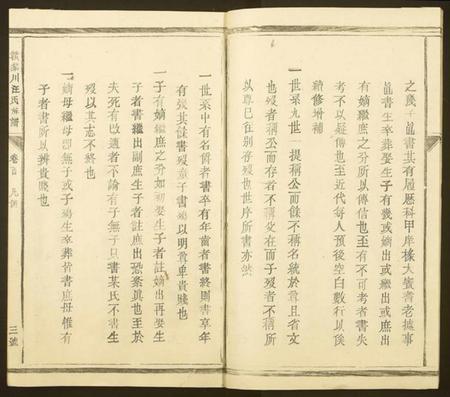 之處子亂書其有履歷科甲庠模大賓耆老據事
亂書生卒葬娶生子有幾或嫡出或繼出或庶出
有嫡繼庶之分所以傳信也至有不可考者書失
考不以疑傳也至近代每人預後空白數行以俟
續修增補
一世系九世一提稱公而餘不稱名統於尊且省文
也歿者稱公而存者不稱父在而子歿者不稱所
以尊巳在別者歿也世序所書亦然
一世系中有名爵者書卒有年齒者書終則書享年
有殀其誰書歿童子書殤以明尊卑貴賤也
一子有嫡繼庶之分如初娶生子者註嫡出再娶生
子者書繼出副庶生子者註庶出恐紊眞也至於
夫死有改適者不論有子無子只書某氏不書生
歿以其志不終也
一嫡母繼母即無子或子殤生卒葬皆書庶母惟有
子者書所以辨貴賤也
川汪氏宗譜
卷首 凡例
三號